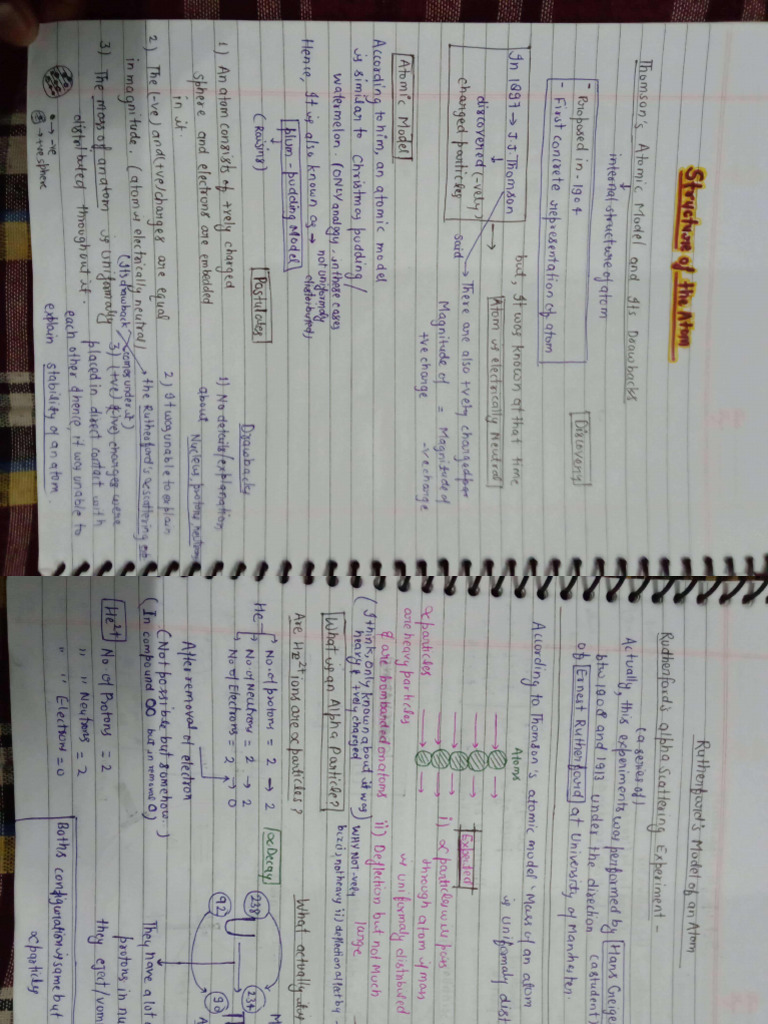 Structure of the Atom
Thomson's Atomic Model and Its Drawbacks
internal structure of atom
- Proposed in - 1904
- First concrete representation of atom
Discovery
In 1897 → J.J. Thomson
discovered (-vely)
charged particles
but, It was known at that time
Atom is electrically Neutral
said
There are also +vely charged par
Magnitude of = Magnitude of
+ve charge -ve charge
Atomic Model
According to him, an atomic model
is similar to Christmas pudding/
watermelon. (ONLY analogy, in these cases
not uniformly
distributed)
Hence, It is also known as →
plum-pudding Model
(Raisins)
Postulates
1) An atom consists of +vely charged
sphere and electrons are embedded
in it.
2) The (-ve) and (+ve) charges are equal
in magnitude. (atom is electrically neutral)
(Its drawback
comes under it)
3) The mass of an atom is uniformally
distributed throughout it.
• → -ve
→ +ve sphere
Drawbacks
1) No details/explanation
about Nucleus, proton, neutron
2) It was unable to explain
the Rutherford's α scattering ex
3) (+ve) & (-ve) charges were
placed in direct contact with
each other & hence, it was unable to
explain stability of an atom.
Rutherford's Model of an Atom
Rutherford's alpha Scattering Experiment -
(a series of)
Actually, this experiments was performed by Hans Geige
btw 1908 and 1913 under the direction (astudent)
of Ernest Rutherford at University of Manchester.
According to Thomson's atomic model - Mass of an atom
is uniformaly dist
Atoms
α particles
are heavy particles
& are bombarded on atoms
(I think, only known about it was)
heavy & +vely charged
Expected
i) α particles will pass
through atom if mass
is uniformaly distributed
ii) Deflection but not Much
large
What is an Alpha Particle?
WHY NOT -vely
bcz i) not heavy ii) deflection
Are He²⁺ ions are α particles?
He
No. of protons = 2 → 2
No of Neutrons = 2 → 2
No of Electrons = 2 → 0
After removal of electron
(Not possible but somehow..)
(In compound but in remove 0)
He²⁺
No of Protons = 2
" " Neutrons = 2
" " Electron = 0
α Decay
What actually
238
92
234
90
They have a lot
protons in nu
they eject/vom
Boths configuration is same but
α particles